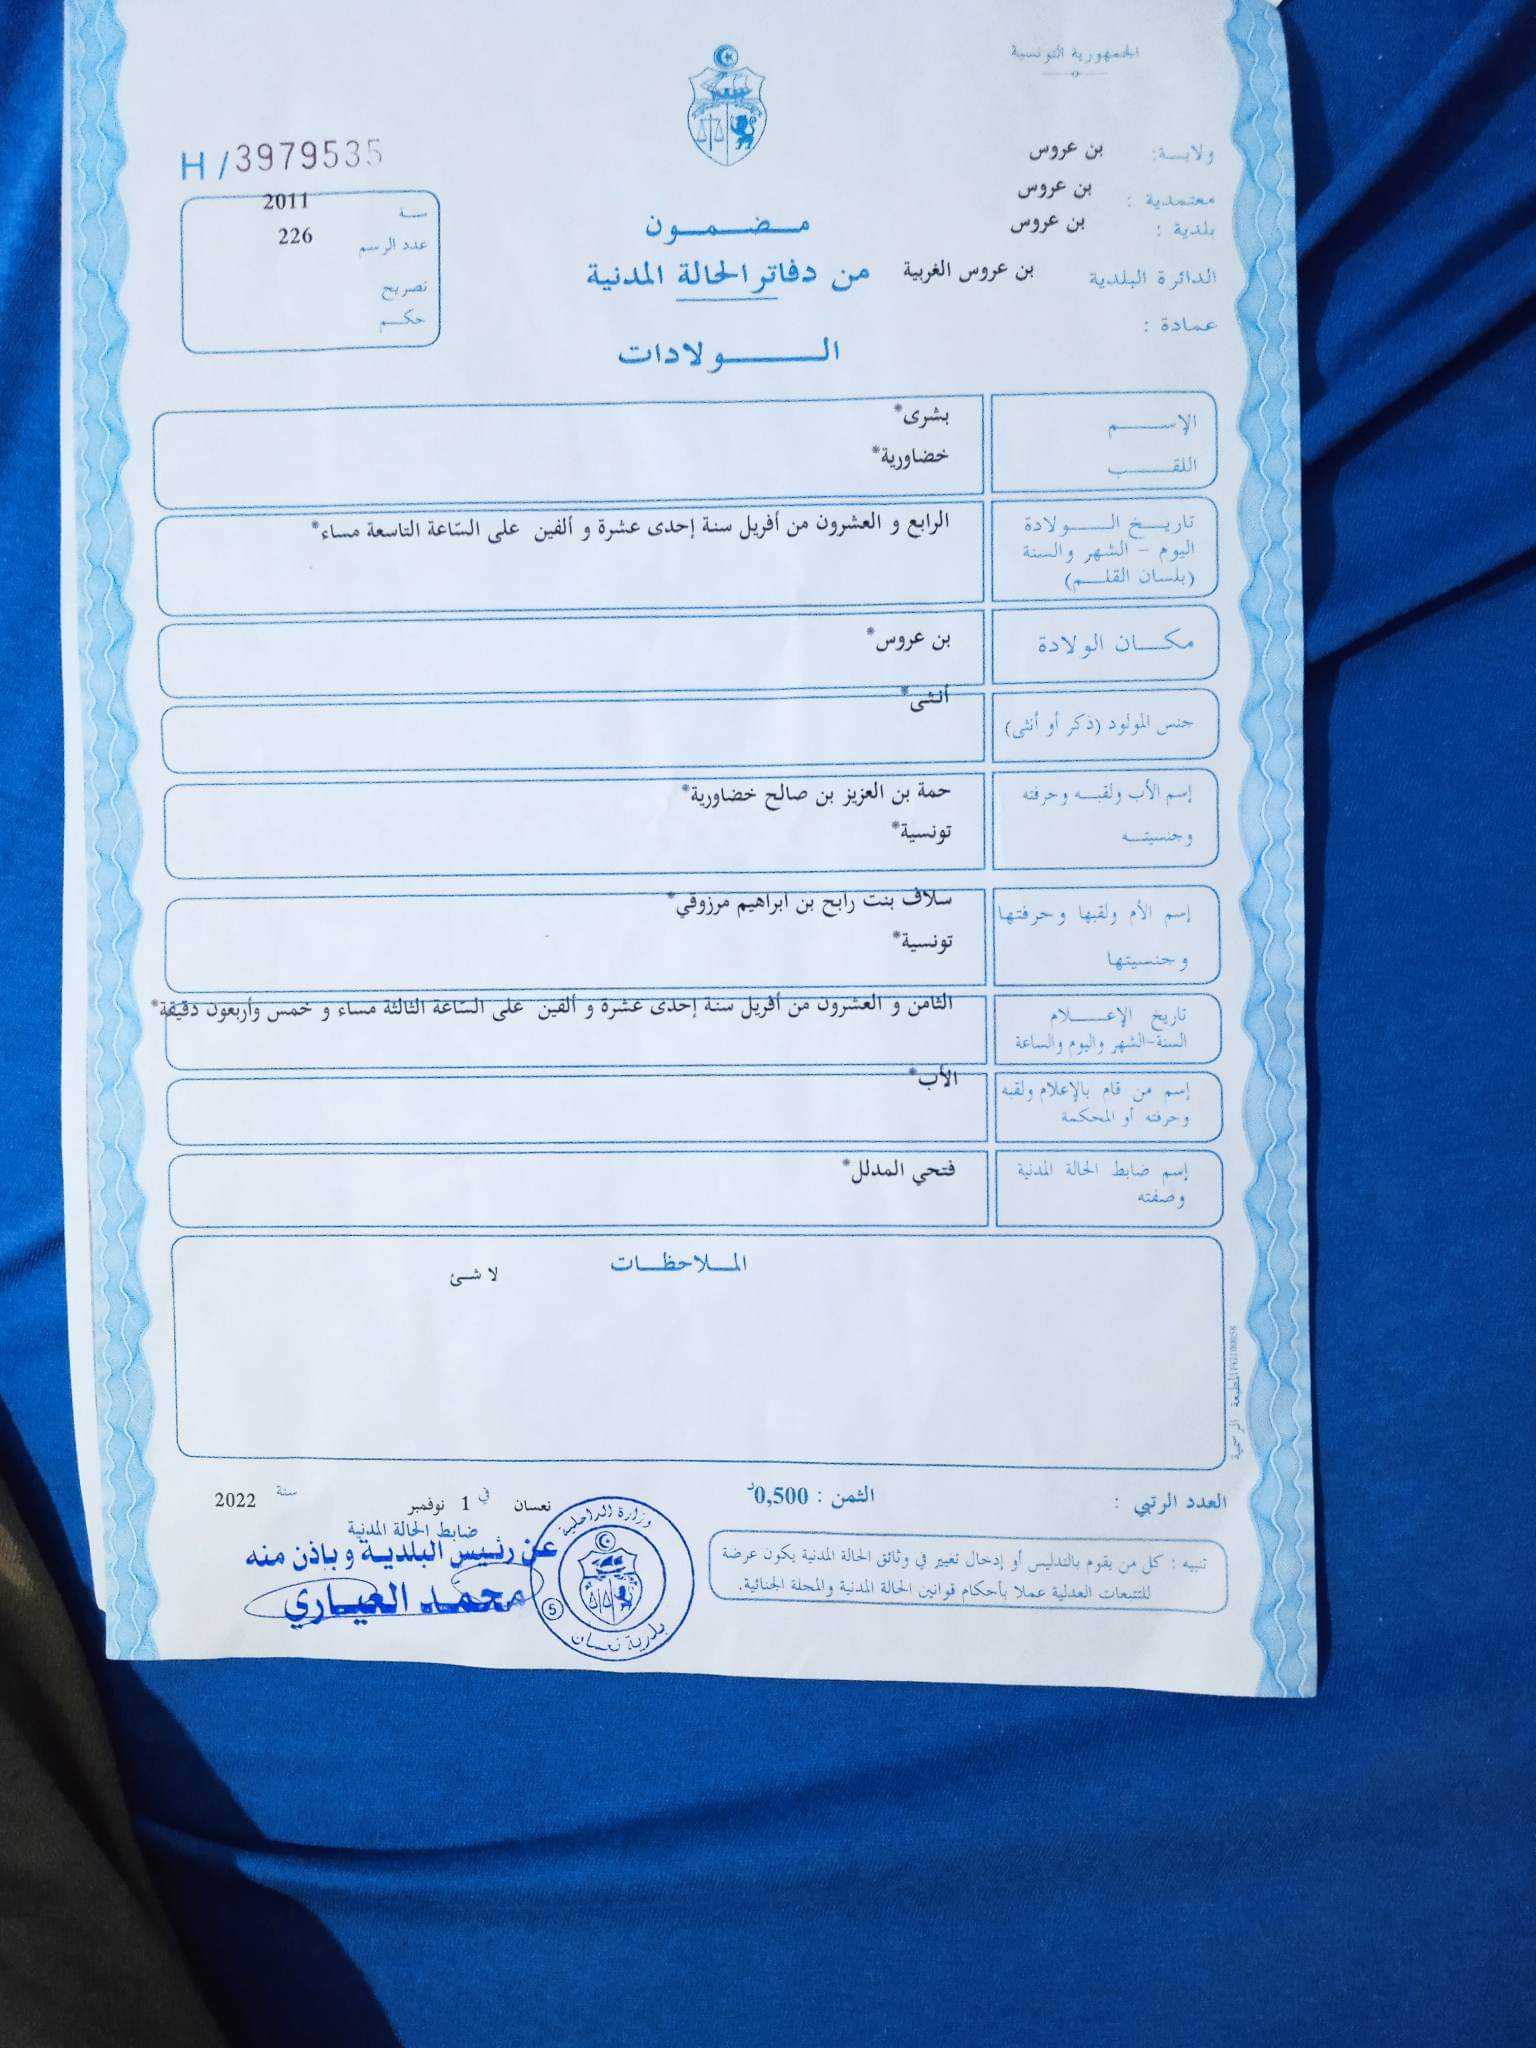 الجمهورية التونسية
ولاية: بن عروس
معتمدية : بن عروس
بلدية : بن عروس
الدائرة البلدية بن عروس الغربية
عمادة :
H / 3979535
سنة 2011
عدد الرسم 226
تصريح
حكم
مضمون
من دفاتر الحالة المدنية
الولادات
الإسم بشرى*
اللقب خضاورية*
تاريخ الولادة
اليوم - الشهر والسنة
(بلسان القلم)
الرابع و العشرون من أفريل سنة إحدى عشرة و ألفين على السّاعة التاسعة مساء*
مكان الولادة بن عروس*
جنس المولود (ذكر أو أنثى) أنثى*
إسم الأب ولقبه وحرفته حمة بن العزيز بن صالح خضاورية*
وجنسيته تونسية*
إسم الأم ولقبها وحرفتها سلاف بنت رابح بن ابراهيم مرزوقي*
وجنسيتها تونسية*
تاريخ الإعلام
السنة-الشهر واليوم والساعة
الثامن و العشرون من أفريل سنة إحدى عشرة و ألفين على السّاعة الثالثة مساء و خمس وأربعون دقيقة*
إسم من قام بالإعلام ولقبه
وحرفته أو المحكمة
الأب*
إسم ضابط الحالة المدنية
وصفته
فتحي المدلل*
الملاحظات
لا شئ
المطبعة الرسمية
العدد الرتبي :
الثمن : 0,500د
تنبيه : كل من يقوم بالتدليس أو إدخال تغيير في وثائق الحالة المدنية يكون عرضة
للتتبعات العدلية عملا بأحكام قوانين الحالة المدنية والمجلة الجنائية.
نعسان في 1 نوفمبر سنة 2022
ضابط الحالة المدنية
عن رئيس البلدية وباذن منه
محمد العياري
وزارة الداخلية
بلدية نعسان
5